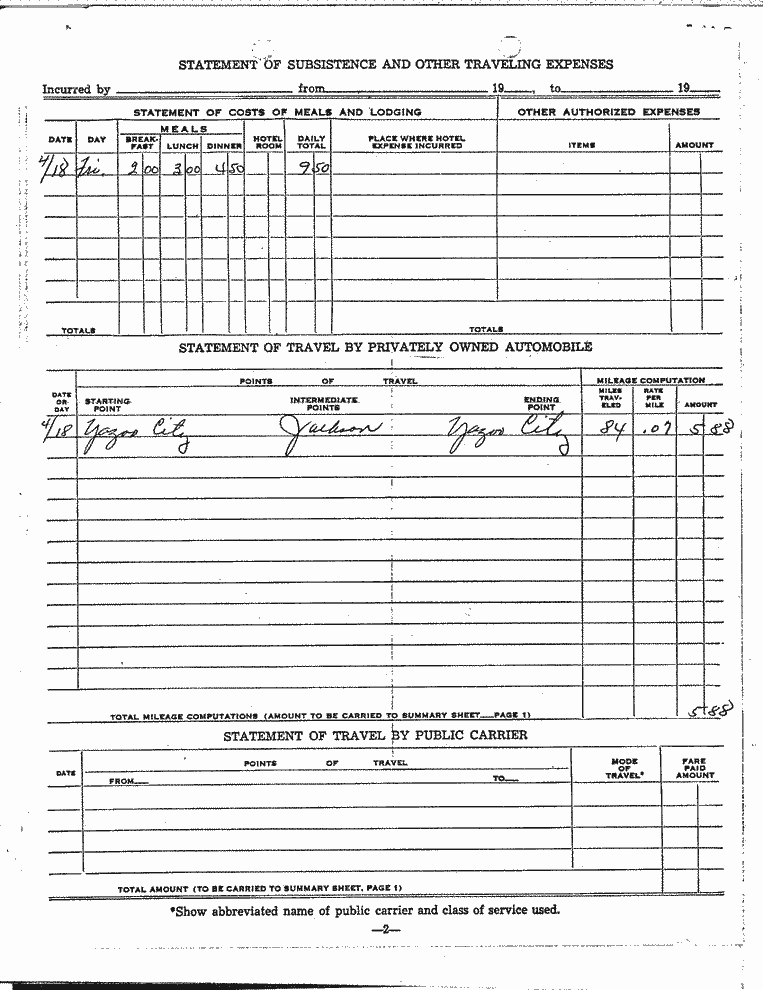 STATEMENT OF SUBSISTENCE AND OTHER TRAVELING EXPENSES
Incurred by from 19 , to 19
STATEMENT OF COSTS OF MEALS AND LODGING OTHER AUTHORIZED EXPENSES
MEALS
DATE DAY BREAK-FAST LUNCH DINNER HOTEL ROOM DAILY TOTAL PLACE WHERE HOTEL EXPENSE INCURRED ITEMS AMOUNT
4/18 Fri. 2 00 3 00 4 50 9 50
TOTALS TOTALS
STATEMENT OF TRAVEL BY PRIVATELY OWNED AUTOMOBILE
POINTS OF TRAVEL MILEAGE COMPUTATION
DATE OR DAY STARTING POINT INTERMEDIATE POINTS ENDING POINT MILES TRAV-ELED RATE PER MILE AMOUNT
4/18 Yazoo City Jackson Yazoo City 84 .07 5 88
TOTAL MILEAGE COMPUTATIONS (AMOUNT TO BE CARRIED TO SUMMARY SHEET—PAGE 1) 5 88
STATEMENT OF TRAVEL BY PUBLIC CARRIER
DATE POINTS OF TRAVEL MODE OF TRAVEL* FARE PAID AMOUNT
FROM— TO—
TOTAL AMOUNT (TO BE CARRIED TO SUMMARY SHEET, PAGE 1)
*Show abbreviated name of public carrier and class of service used.
—2—